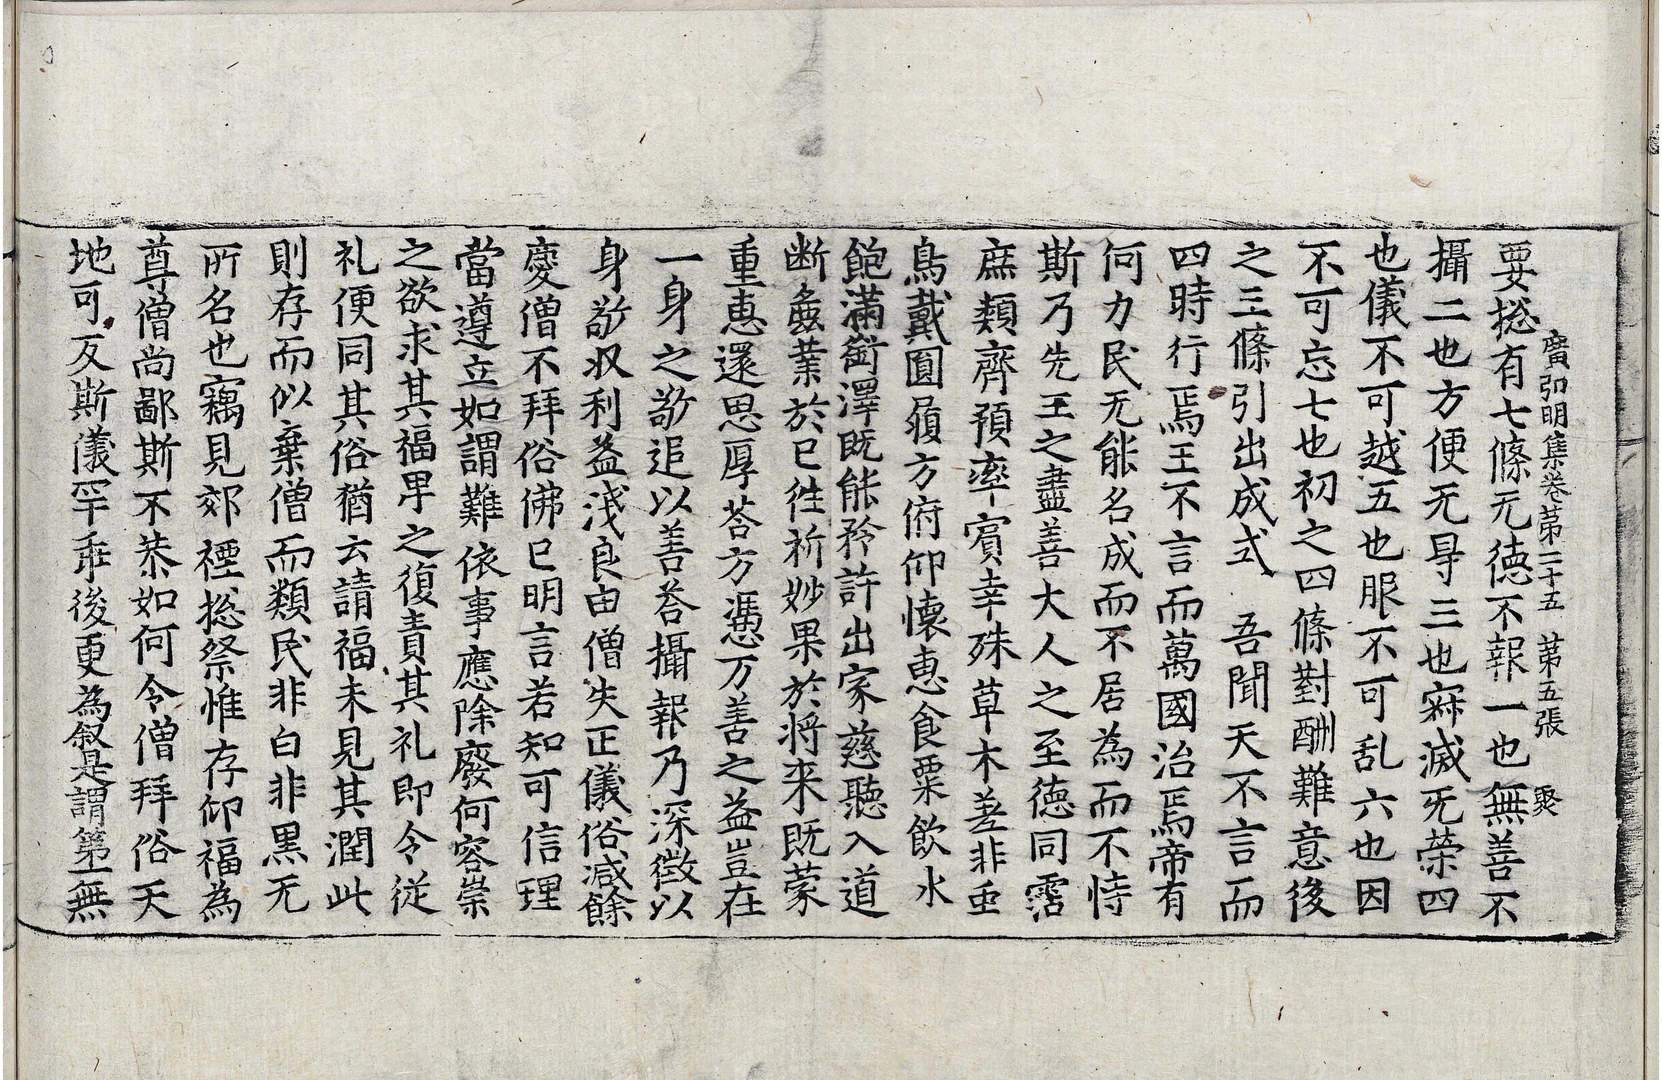 要揔有七條无德不報一也無善不
廣弘明集卷苐二十五　苐五張　㷼
攝二也方便无㝵三也寂滅无榮四
也儀不可越五也服不可乱六也因
不可忘七也初之四條對酬難意後
之三條引出成式　吾聞天不言而
四時行焉王不言而萬國治焉帝有
何力民无能名成而不居為而不恃
斯乃先王之盡善大人之至德同霑
庶類齊預率賓幸殊草木差非虫
鳥戴圓履方俯仰懷惠食粟飲水
飽滿銜澤既能矜許出家慈聽入道
断麁業於已往祈妙果於将来既蒙
重惠還思厚荅方憑万善之益豈在
一身之敬追以善荅攝報乃深徴以
身敬収利益浅良由僧失正儀俗減餘
慶僧不拜俗佛已明言若知可信理
當遵立如謂難依事應除廢何容崇
之欲求其福卑之復責其礼即令従
礼便同其俗猶云請福未見其潤此
則存而似棄僧而類民非白非黒无
所名也竊見郊禋揔祭惟存仰福為
尊僧尚鄙斯不恭如何令僧拜俗天
地可反斯儀罕乖後更為叙是謂第一無